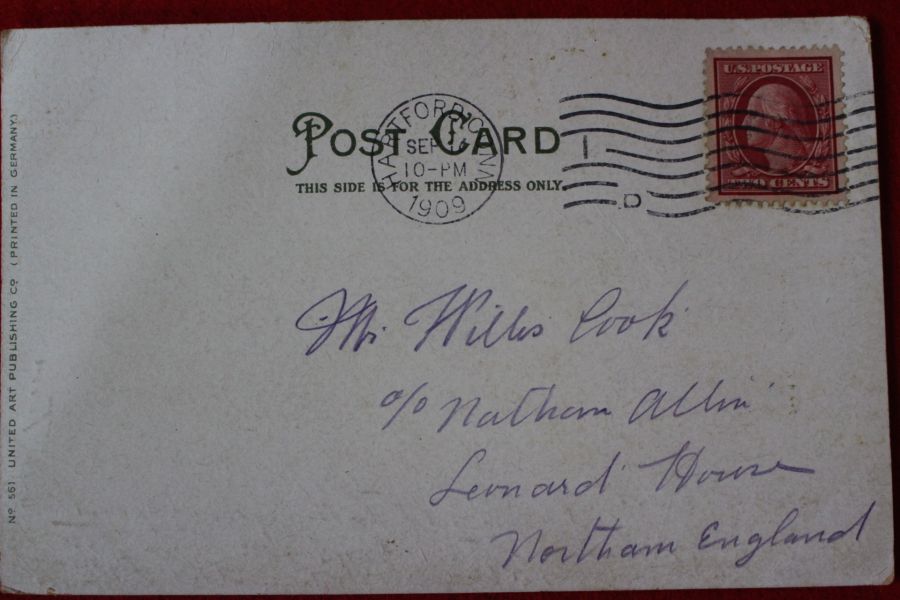 POST CARD
THIS SIDE IS FOR THE ADDRESS ONLY.
HARTFORD CONN
SEP
10-PM
1909
D
U.S. POSTAGE
CENTS
Mr. Willis Cook
c/o Nathan Allin
Leonard House
Northam England
Nº 561. UNITED ART PUBLISHING Cº (PRINTED IN GERMANY.)